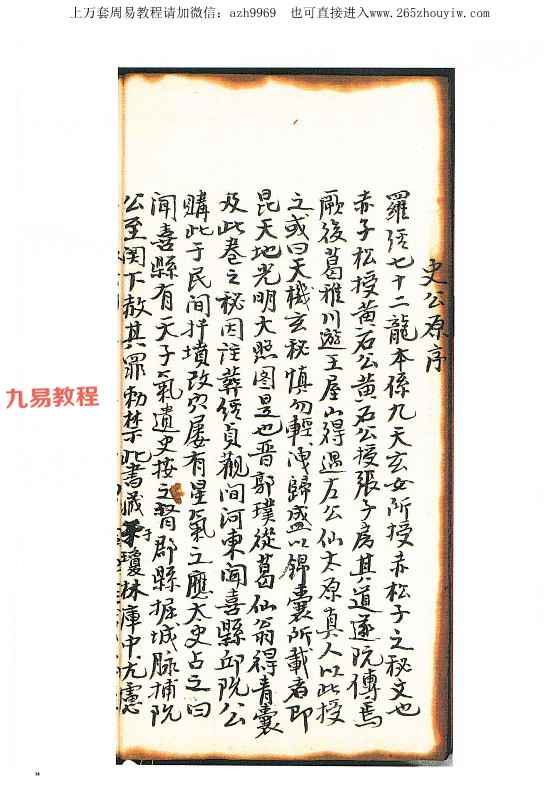 上万套周易教程请加微信：azh9969　也可直接进入www.265zhouyiw.com
史公原序
羅経七十二龍本係九天玄女所授赤松子之秘文也
赤子松授黄石公黄石公授張子房其道遂阮傳焉
厥後葛稚川遊王屋山得遇左公仙太原真人以此授
之或曰天機玄秘慎勿輕洩歸盛以錦囊所載者即
昆天地光明大照图是也晋郭璞從葛仙翁得青囊
及此卷之秘因註葬経貞觀间河東闻喜縣邱阮公
購此于民间扦墳改穴屡有星氣之應太史占之曰
闻喜縣有天子氣遺史按之督郡縣掘城脉捕阮
公至闵下赦其罪勅禁此書藏于瓊林庫中尤憲
九易教程